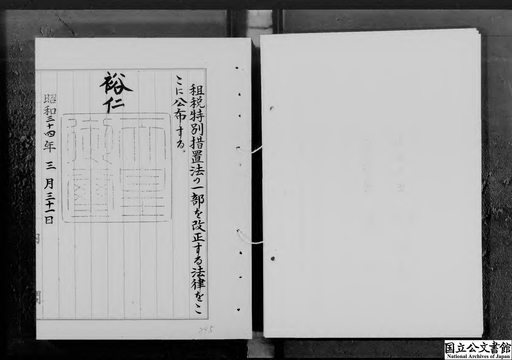 租税特別措置法の一部を改正する法律をこ
こに公布する。
裕仁
昭和三十四年三月三十一日
内閣
248
国立公文書館
National Archives of Japan